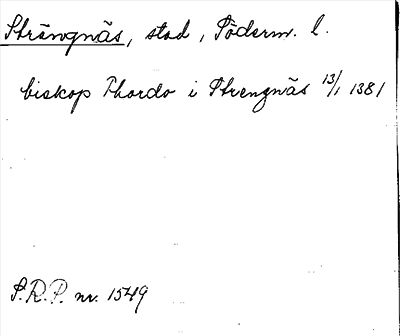 Strängnäs, stad, Söderm. l.
biskop Thordo i Strengnäs 13/1 1381
S.R.P. nr. 1549